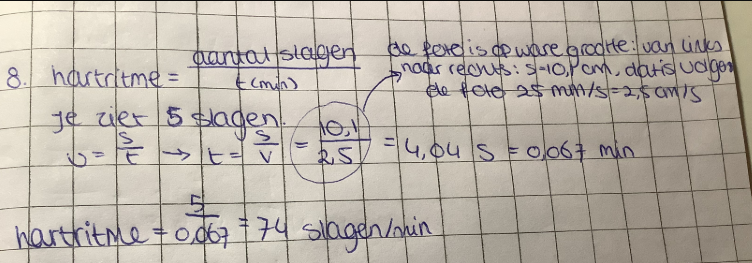 8. hartritme = aantal slagen / t(min)
de foto is op ware grootte: van links
naar rechts: s=10,1 cm, dat is volgens
de foto 25 mm/s = 2,5 cm/s
Je ziet 5 slagen.
v = s/t → t = s/v = 10,1/2,5 = 4,04 s = 0,067 min
hartritme = 5/0,067 = 74 slagen/min